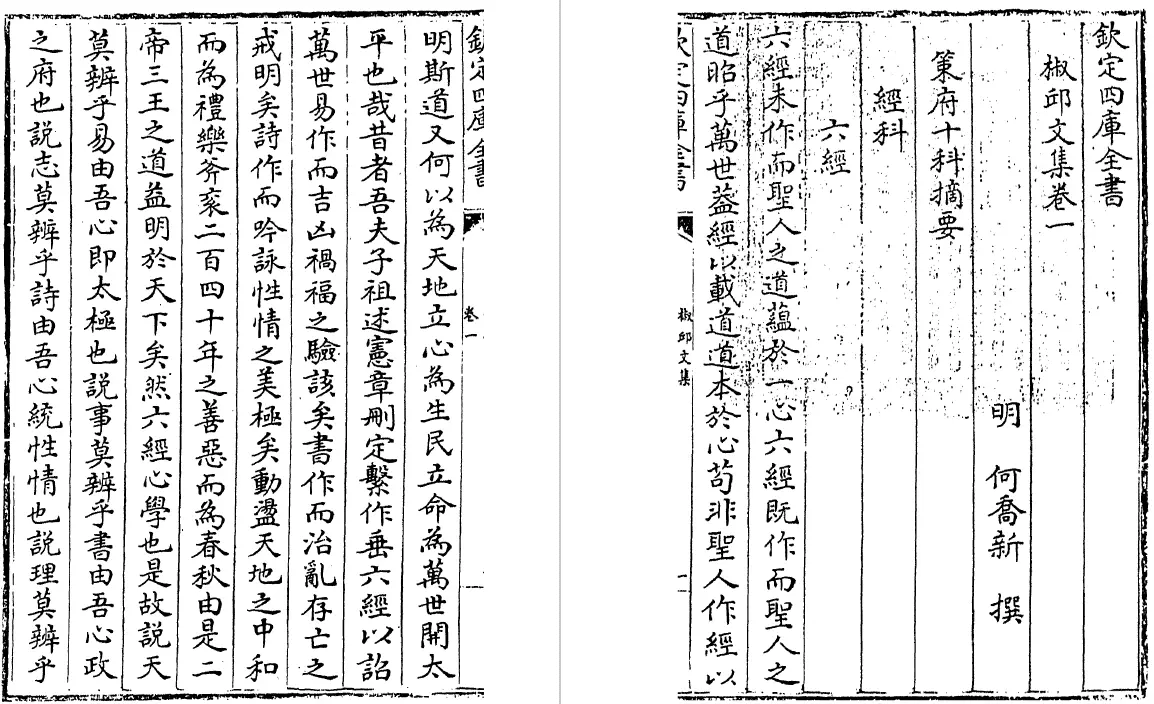 欽定四庫全書
椒邱文集卷一
明 何喬新 撰
策府十科摘要
經科
六經
六經未作而聖人之道蘊於一心六經既作而聖人之
道昭乎萬世葢經以載道道本於心茍非聖人作經以
欽定四庫全書
椒邱文集
一
欽定四庫全書
卷一
明斯道又何以為天地立心為生民立命為萬世開太
平也哉昔者吾夫子祖述憲章刪定繫作垂六經以詔
萬世易作而吉凶禍福之驗該矣書作而治亂存亡之
戒明矣詩作而吟詠性情之美極矣動盪天地之中和
而為禮樂斧衮二百四十年之善惡而為春秋由是二
帝三王之道益明於天下矣然六經心學也是故説天
莫辨乎易由吾心即太極也説事莫辨乎書由吾心政
之府也説志莫辨乎詩由吾心統性情也説理莫辨乎